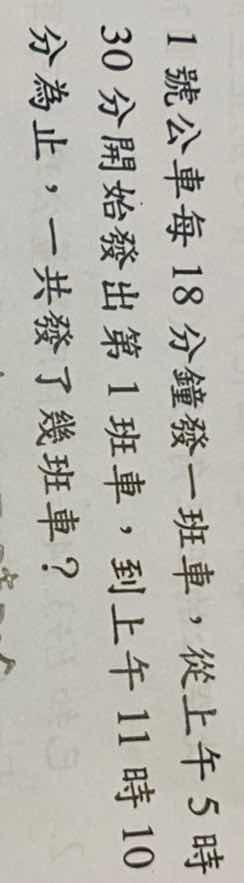 1號公車每18分鐘發一班車，從上午5時
30分開始發出第1班車，到上午11時10
分為止，一共發了幾班車？